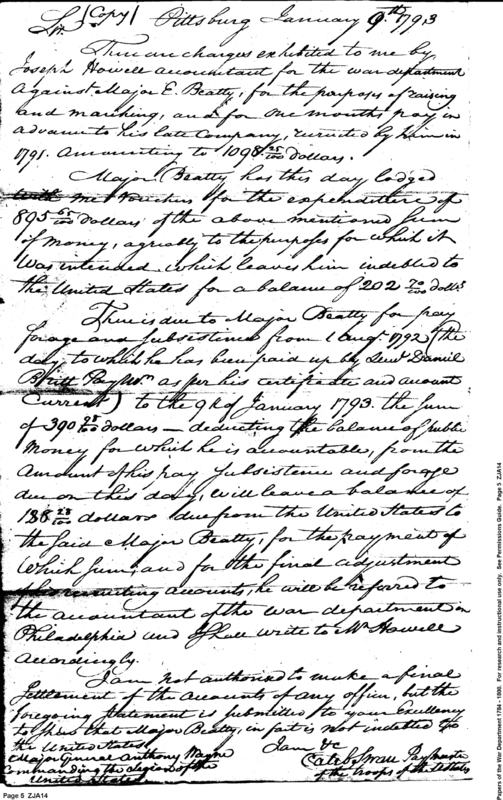 (Copy) Pittsburg January 9th 1793
Sir
There are charges exhibited to me by
Joseph Howell accountant for the war department
Against Major E. Beatty, for the purposes of raising
and marching, and for one months pay in
advance to his late Company, recruited by him in
1791. amounting to 1098 25/100 dollars.
Major Beatty has this day lodged
with me Vouchers for the expenditure of
895 55/100 dollars of the above mentioned Sum
of money, agreably to the purposes for which it
was intended which leaves him indebted to
the United States for a balance of 202 70/100 dolls
There is due to Major Beatty for pay
forage and Subsistence from 1 augt 1792 (the
day to which he has been paid up by Lieut Daniel
Britt Pay Mr as per his certificate and account
Current) to the 9th of January 1793. the Sum
of 390 98/100 dollars — deducting the balance of public
Money for which he is accountable, from the
Amount of his pay Subsistence and forage
due on this day, will leave a balance of
188 28/100 dollars due from the United States to
the Said Major Beatty, for the payment of
which Sum, and for the final adjustment
of his recruiting accounts, he will be referred to
the accountant of the War department in
Philadelphia and I shall write to Mr Howell
accordingly.
I am not authorised to make a final
Settlement of the accounts of any officer, but the
foregoing Statement is submitted to your Excellency
to Shew that Major Beatty, in fact is not indebted to
the United States
I am &c
Major General Anthony Wayne
Commanding the Legion of the
United States
Caleb Swan Paymaster
of the troops of the UStates
Page 5 ZJA14
Papers of the War Department 1784 - 1800. For research and instructional use only. See Permissions Guide. Page 5 ZJA14